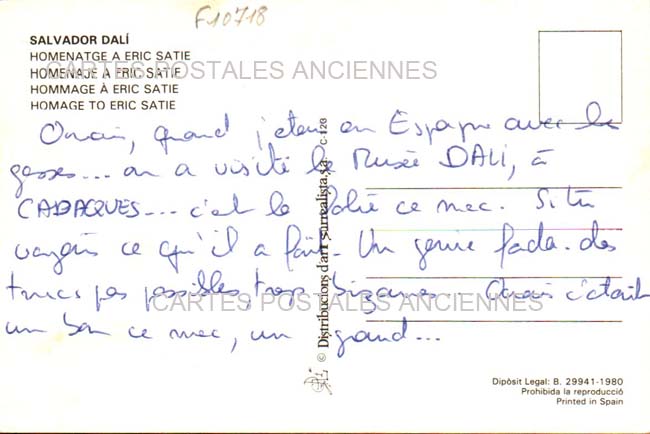 F10718
SALVADOR DALÍ
HOMENATGE A ERIC SATIE
HOMENAJE A ERIC SATIE
HOMMAGE À ERIC SATIE
HOMAGE TO ERIC SATIE
CARTES POSTALES ANCIENNES
Ouais, quand j'étais en Espagne avec les
gosses... on a visité le Musée DALI, à
CADAQUES... c'est la folie ce mec. Si tu
voyais ce qu'il a fait. Un génie fada. des
trucs pas possibles, trop bizarres. Ouais c'était
un bon ce mec, un grand...
CARTES POSTALES ANCIENNES
© Distribucions d'art surrealista, s.a. C-120
Dipòsit Legal: B. 29941-1980
Prohibida la reproducció
Printed in Spain